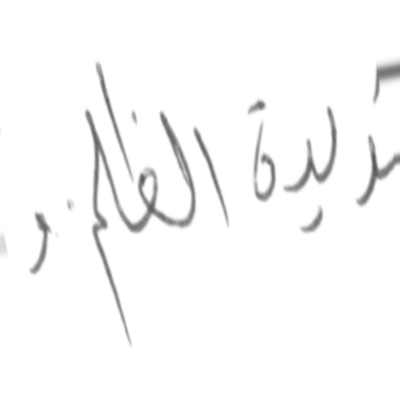 شديدة الظلم و